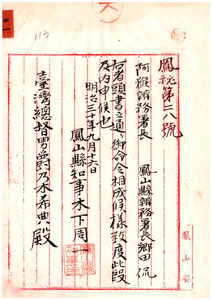 鳳秘第二八號
鳳山縣辨務署長郷田侃
阿猴辨務署長
右者頭書之通御命令相成候様致度此段
及内申候也
明治三十年九月十六日
鳳山縣知事木下周一
臺灣總督男爵乃木希典殿
113